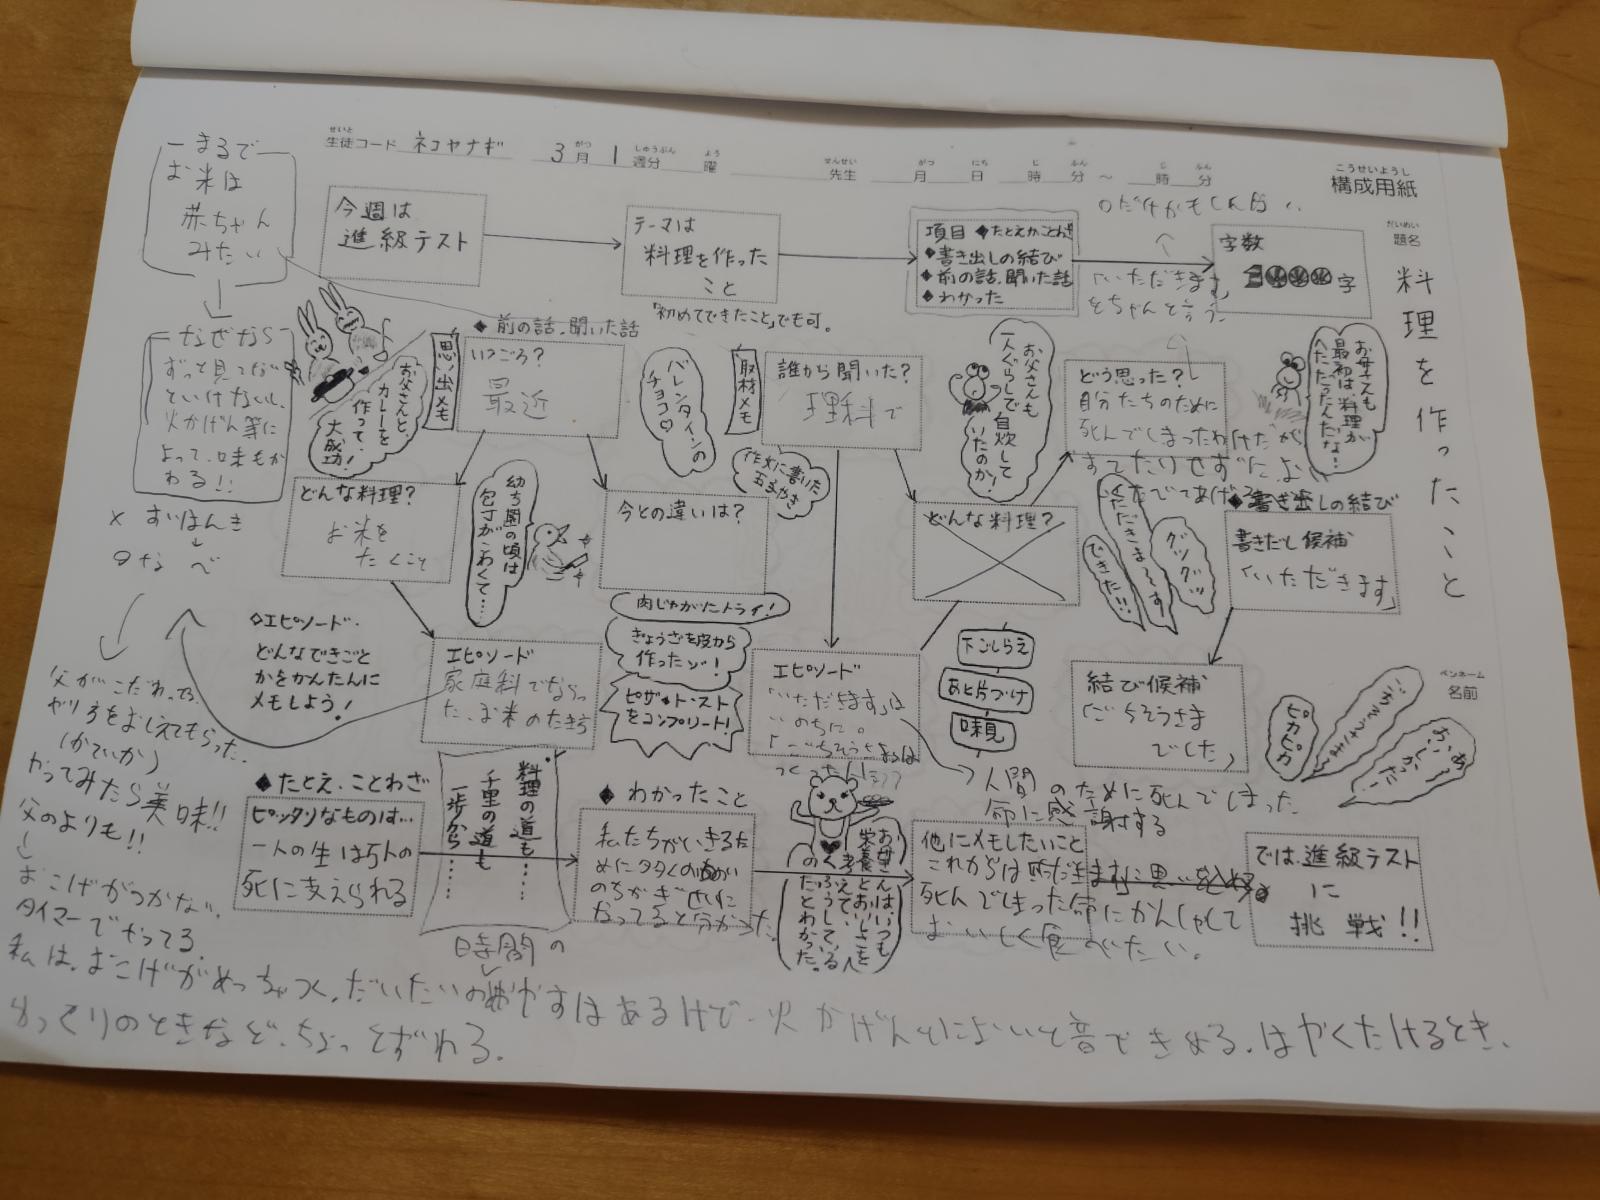 せいと
生徒コード ネコヤナギ 3月 1週分 曜 先生 月 日 時 分 ～ 時 分
がつ しゅうぶん よう せんせい がつ にち じ ふん じ ふん
こうせいようし
構成用紙
だいめい
題名
料理を作ったこと
ペンネーム
名前
まるで
お米は
赤ちゃん
みたい
今週は
進級テスト
テーマは
料理を作った
こと
「初めてできたこと」でも可。
項目 ◆たとえかことわざ
◆書き出しの結び
◆前の話、聞いた話
◆わかった
字数
字
「いただきます」
をちゃんと言う
なぜなら
ずっと見てない
といけないし、
火かげん等に
よって、味もか
わる!!
お父さんと、
カレーを
作って、
大成功!
思い出メモ
◆前の話、聞いた話
いつごろ?
最近
バレンタインの
チョコ♡
取材メモ
誰から聞いた?
理科で
作文に書いた
お父さんも
一人ぐらしで
自炊して
いたのか!
どう思った?
自分たちのために
死んでしまったわけだが
すてたりせずに
お母さんも
最初は、料理が
へただったんだな!
どんな料理?
お米を
たくこと
× すいはんき
なべ
幼ち園の頃は
包丁がこわくて…
今との違いは?
どんな料理?
いただきま～す
できた!!
グツグツ
◆書き出しの結び
書きだし候補
「いただきます」
◇エピソード・
どんなできごと
かをかんたんに
メモしよう!
エピソード
家庭科でなら
った、お米のたき方
肉じゃがにトライ!
ぎょうざを皮から
作ったゾ!
ピザ・トースト
をコンプリート!
エピソード
「いただきます」は
いのちに。
「ごちそうさまは
つくった人に
下ごしらえ
あと片づけ
味見
結び候補
「ごちそうさま
でした」
ピカピカ
ごちそうさま
おいしかった
人間のために死んでしまった
命に感謝する
父がこだわってる
やり方をおしえてもらった。
(かていか)
やってみたら美味!!
父のよりも!!
おこげがつかない。
タイマーでやってる
◆たとえ、ことわざ
ピッタリなものは…
一人の生は万人の
死に支えられる
料理の道も、
千里の道も
一歩から……
◆わかったこと
私たちがいきるた
めに多くの
のちがぎせいに
なってると分かった。
お母さんは、いつも
栄養とおいしさを
考えて、
くふうしている
のだとわかった。
他にメモしたいこと
これからは
死んでしまった命にかんしゃして
おいしく食べたい。
では、進級テスト
に
挑戦!!
時間の
私は、おこげがめっちゃつく、だいたいのめやすはあるけど、火かげんとにおいと音できめる。はやくたけるとき、
ゆっくりのときなど、ちょっとずれる。